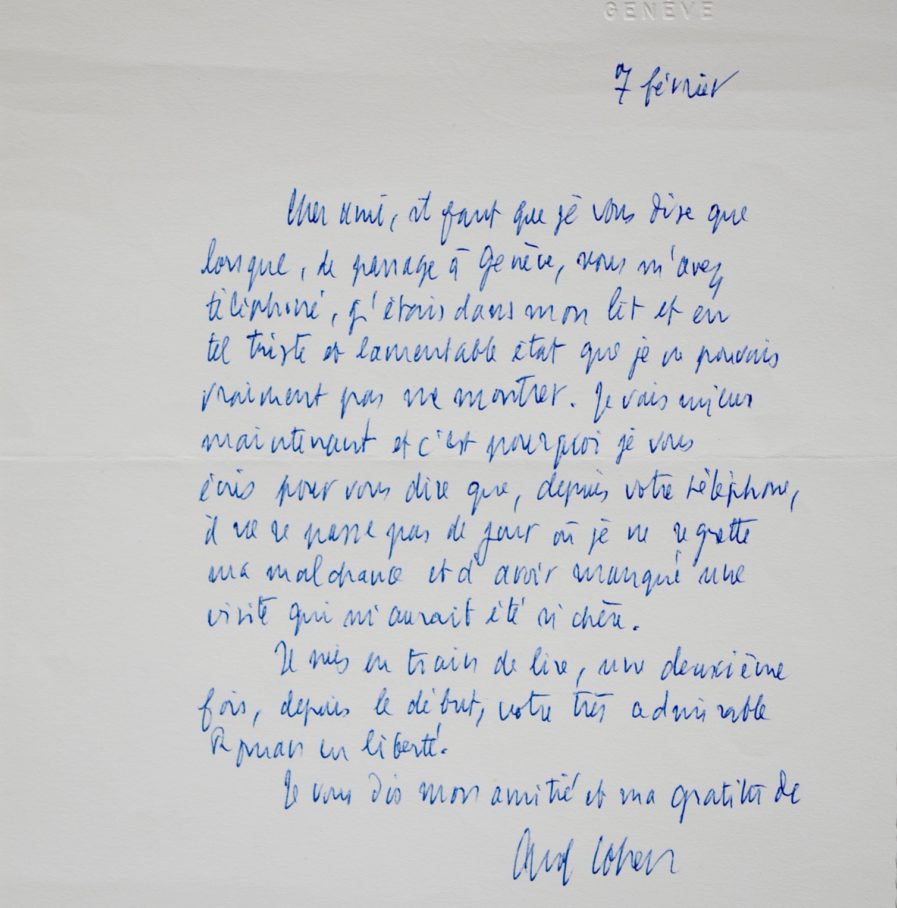 GENÈVE
7 février
Cher ami, il faut que je vous dise que
lorsque, de passage à Genève, vous m'avez
téléphoné, j'étais dans mon lit et en
tel triste et lamentable état que je ne pouvais
vraiment pas me montrer. Je vais mieux
maintenant et c'est pourquoi je vous
écris pour vous dire que, depuis votre téléphone,
il ne se passe pas de jour où je ne regrette
ma malchance et d'avoir manqué une
visite qui m'aurait été si chère.
Je suis en train de lire, une deuxième
fois, depuis le début, votre très admirable
Roman en liberté.
Je vous dis mon amitié et ma gratitude
Cohen